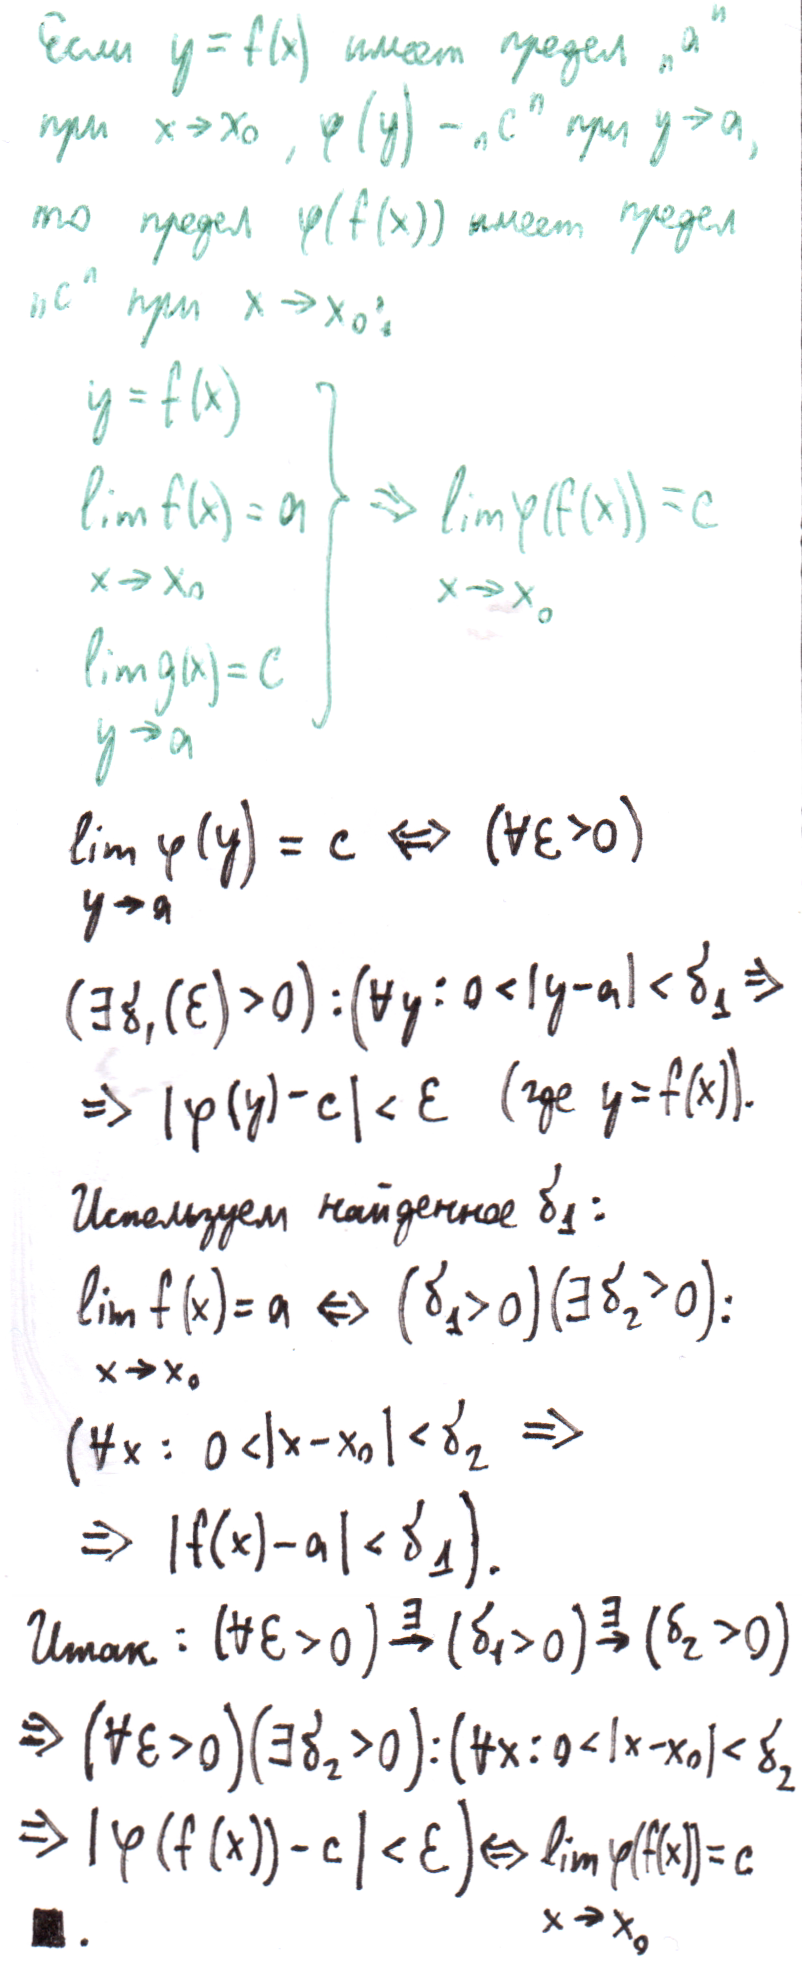 Если y = f(x) имеет предел „a"
при x → x₀, φ(y) – „c" при y → a,
то предел φ(f(x)) имеет предел
„c" при x → x₀:
y = f(x)
lim f(x) = a } ⇒ lim φ(f(x)) = c
x → x₀ x → x₀
lim g(x) = c
y → a
lim φ(y) = c ⇔ (∀ε>0)
y → a
(∃δ₁(ε)>0):(∀y: 0<|y-a|<δ₁ ⇒
⇒ |φ(y)-c|<ε (где y=f(x)).
Используем найденное δ₁:
lim f(x) = a ⇔ (δ₁>0)(∃δ₂>0):
x → x₀
(∀x: 0<|x-x₀|<δ₂ ⇒
⇒ |f(x)-a|<δ₁).
Итак: (∀ε>0) ∃→ (δ₁>0) ∃→ (δ₂>0)
⇒ (∀ε>0)(∃δ₂>0):(∀x: 0<|x-x₀|<δ₂
⇒ |φ(f(x))-c|<ε) ⇔ lim φ(f(x)) = c
x → x₀
■.